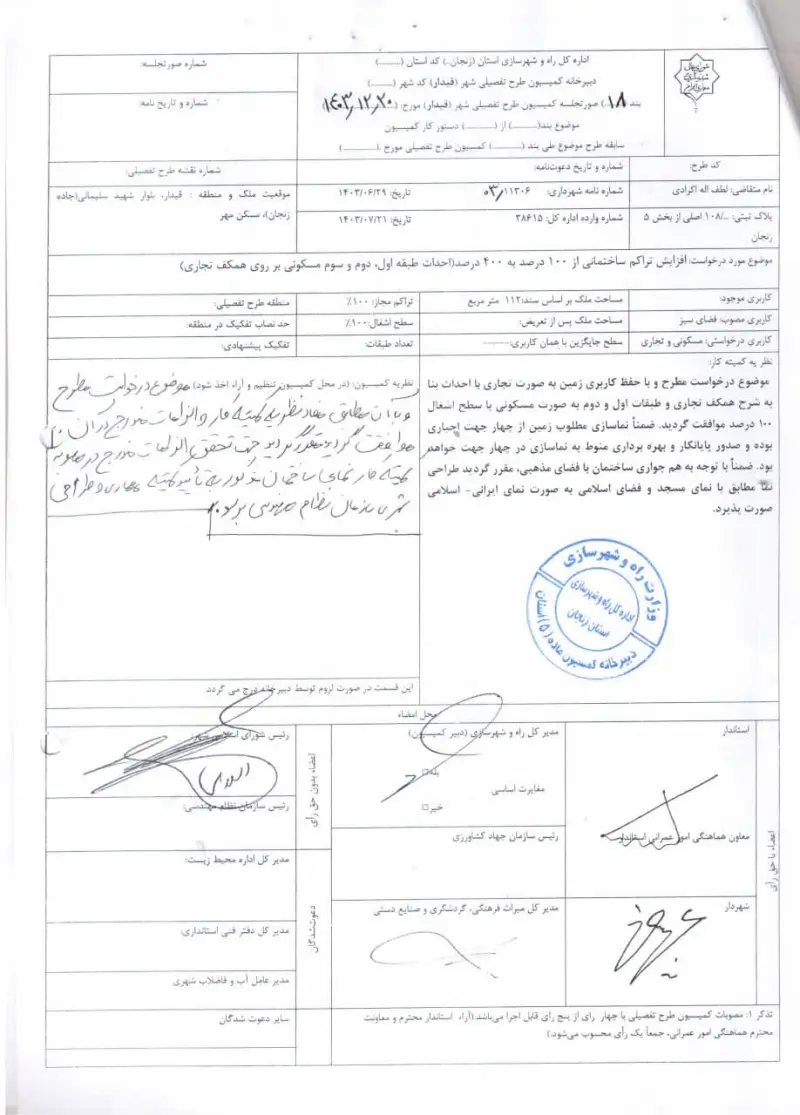 اداره کل راه و شهرسازی استان (زنجان..) کد استان (........)
شماره صورتجلسه:
دبیرخانه کمیسیون طرح تفصیلی شهر (قیدار) کد شهر (........)
شماره و تاریخ نامه:
بند ۱۸.) صورتجلسه کمیسیون طرح تفصیلی شهر (قیدار) مورخ: (۱۴۰۳٫۱۲٫۲۰
موضوع بند(..........) از (..........) دستور کار کمیسیون
سابقه طرح موضوع طی بند (..........) کمیسیون طرح تفصیلی مورخ (..........)
کد طرح:
شماره و تاریخ دعوت‌نامه:
شماره نقشه طرح تفصیلی:
نام متقاضی: لطف اله اکرادی
شماره نامه شهرداری: ۰۳٫۱۱۳۰۶
تاریخ: ۱۴۰۳/۰۶/۲۹
موقعیت ملک و منطقه : قیدار، بلوار شهید سلیمانی(جاده زنجان)، مسکن مهر
پلاک ثبتی: ۱۰۸/.. اصلی از بخش ۵ زنجان
شماره وارده اداره کل: ۳۸۶۱۵
تاریخ: ۱۴۰۳/۰۷/۲۱
موضوع مورد درخواست: افزایش تراکم ساختمانی از ۱۰۰ درصد به ۴۰۰ درصد(احداث طبقه اول، دوم و سوم مسکونی بر روی همکف تجاری)
کاربری موجود:
مساحت ملک بر اساس سند: ۱۱۲ متر مربع
تراکم مجاز: ۱۰۰٪
منطقه طرح تفصیلی:
کاربری مصوب: فضای سبز
مساحت ملک پس از تعریض:
سطح اشغال: ۱۰۰٪
حد نصاب تفکیک در منطقه:
کاربری درخواستی: مسکونی و تجاری
سطح جایگزین با همان کاربری:--------
تعداد طبقات:
تفکیک پیشنهادی:
نظریه کمیته کار:
موضوع درخواست مطرح و با حفظ کاربری زمین به صورت تجاری با احداث بنا
به شرح همکف تجاری و طبقات اول و دوم به صورت مسکونی با سطح اشغال
۱۰۰ درصد موافقت گردید. ضمناً نماسازی مطلوب زمین از چهار جهت اجباری
بوده و صدور پایانکار و بهره برداری منوط به نماسازی در چهار جهت خواهد
بود. ضمناً با توجه به هم جواری ساختمان با فضای مذهبی، مقرر گردید طراحی
نما مطابق با نمای مسجد و فضای اسلامی به صورت نمای ایرانی- اسلامی
صورت پذیرد.
نظریه کمیسیون: (در محل کمیسیون تنظیم و آراء اخذ شود) موضوع درخواست مطرح
و با آن مطابق مفاد نظریه کمیته کار و الزامات مندرج در آن
موافقت گردید مقرر گردید جهت تحقق الزامات مندرج در مصوبه
کمیته کار نمای ساختمان مذکور به تأیید کمیته معماری و طراحی
شهری سازمان نظام مهندسی برسد.
وزارت راه و شهرسازی
اداره کل راه و شهرسازی
استان زنجان
دبیرخانه کمسیون ماده (۵) استان
این قسمت در صورت لزوم توسط دبیرخانه درج می گردد.
محل امضاء
استاندار
مدیر کل راه و شهرسازی (دبیر کمیسیون)
رئیس شورای اسلامی شهر:
بله□
مغایرت اساسی
خیر□
اعضاء بدون حق رأی
رئیس سازمان نظام مهندسی:
معاون هماهنگی امور عمرانی استاندار
رئیس سازمان جهاد کشاورزی
اعضاء با حق رأی
مدیر کل اداره محیط زیست:
شهردار
مدیر کل میراث فرهنگی، گردشگری و صنایع دستی
دعوت‌شدگان
مدیر کل دفتر فنی استانداری:
مدیر عامل آب و فاضلاب شهری
تذکر ۱: مصوبات کمیسیون طرح تفصیلی با چهار رای از پنج رأی قابل اجرا می‌باشد (آراء استاندار محترم و معاونت
محترم هماهنگی امور عمرانی، جمعاً یک رأی محسوب می‌شود.)
سایر دعوت شدگان